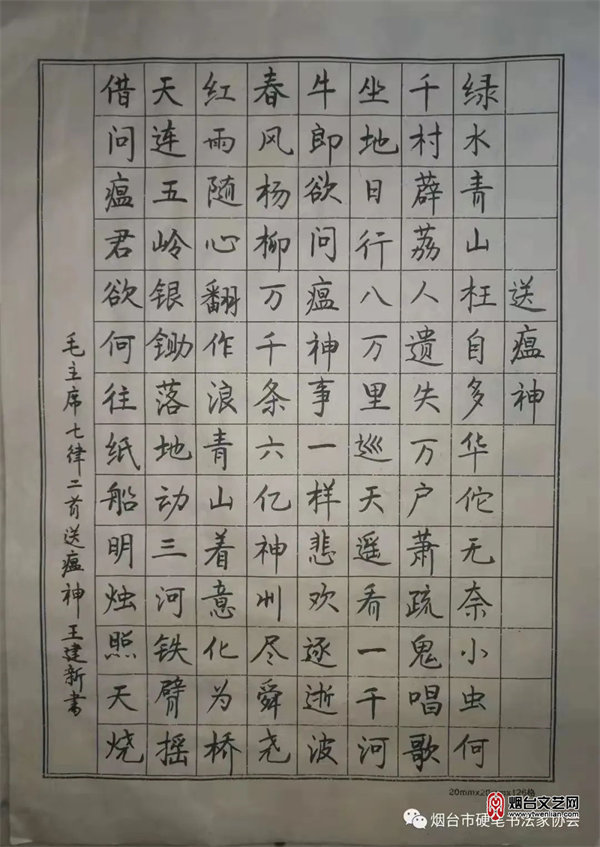 送瘟神
绿水青山枉自多华佗无奈小虫何
千村薜荔人遗失万户萧疏鬼唱歌
坐地日行八万里巡天遥看一千河
牛郎欲问瘟神事一样悲欢逐逝波
春风杨柳万千条六亿神州尽舜尧
红雨随心翻作浪青山着意化为桥
天连五岭银锄落地动三河铁臂摇
借问瘟君欲何往纸船明烛照天烧
毛主席七律二首送瘟神 王建新书
20mmx20mmx126格
烟台市硬笔书法家协会
烟台文艺网
www.ytwenlian.com